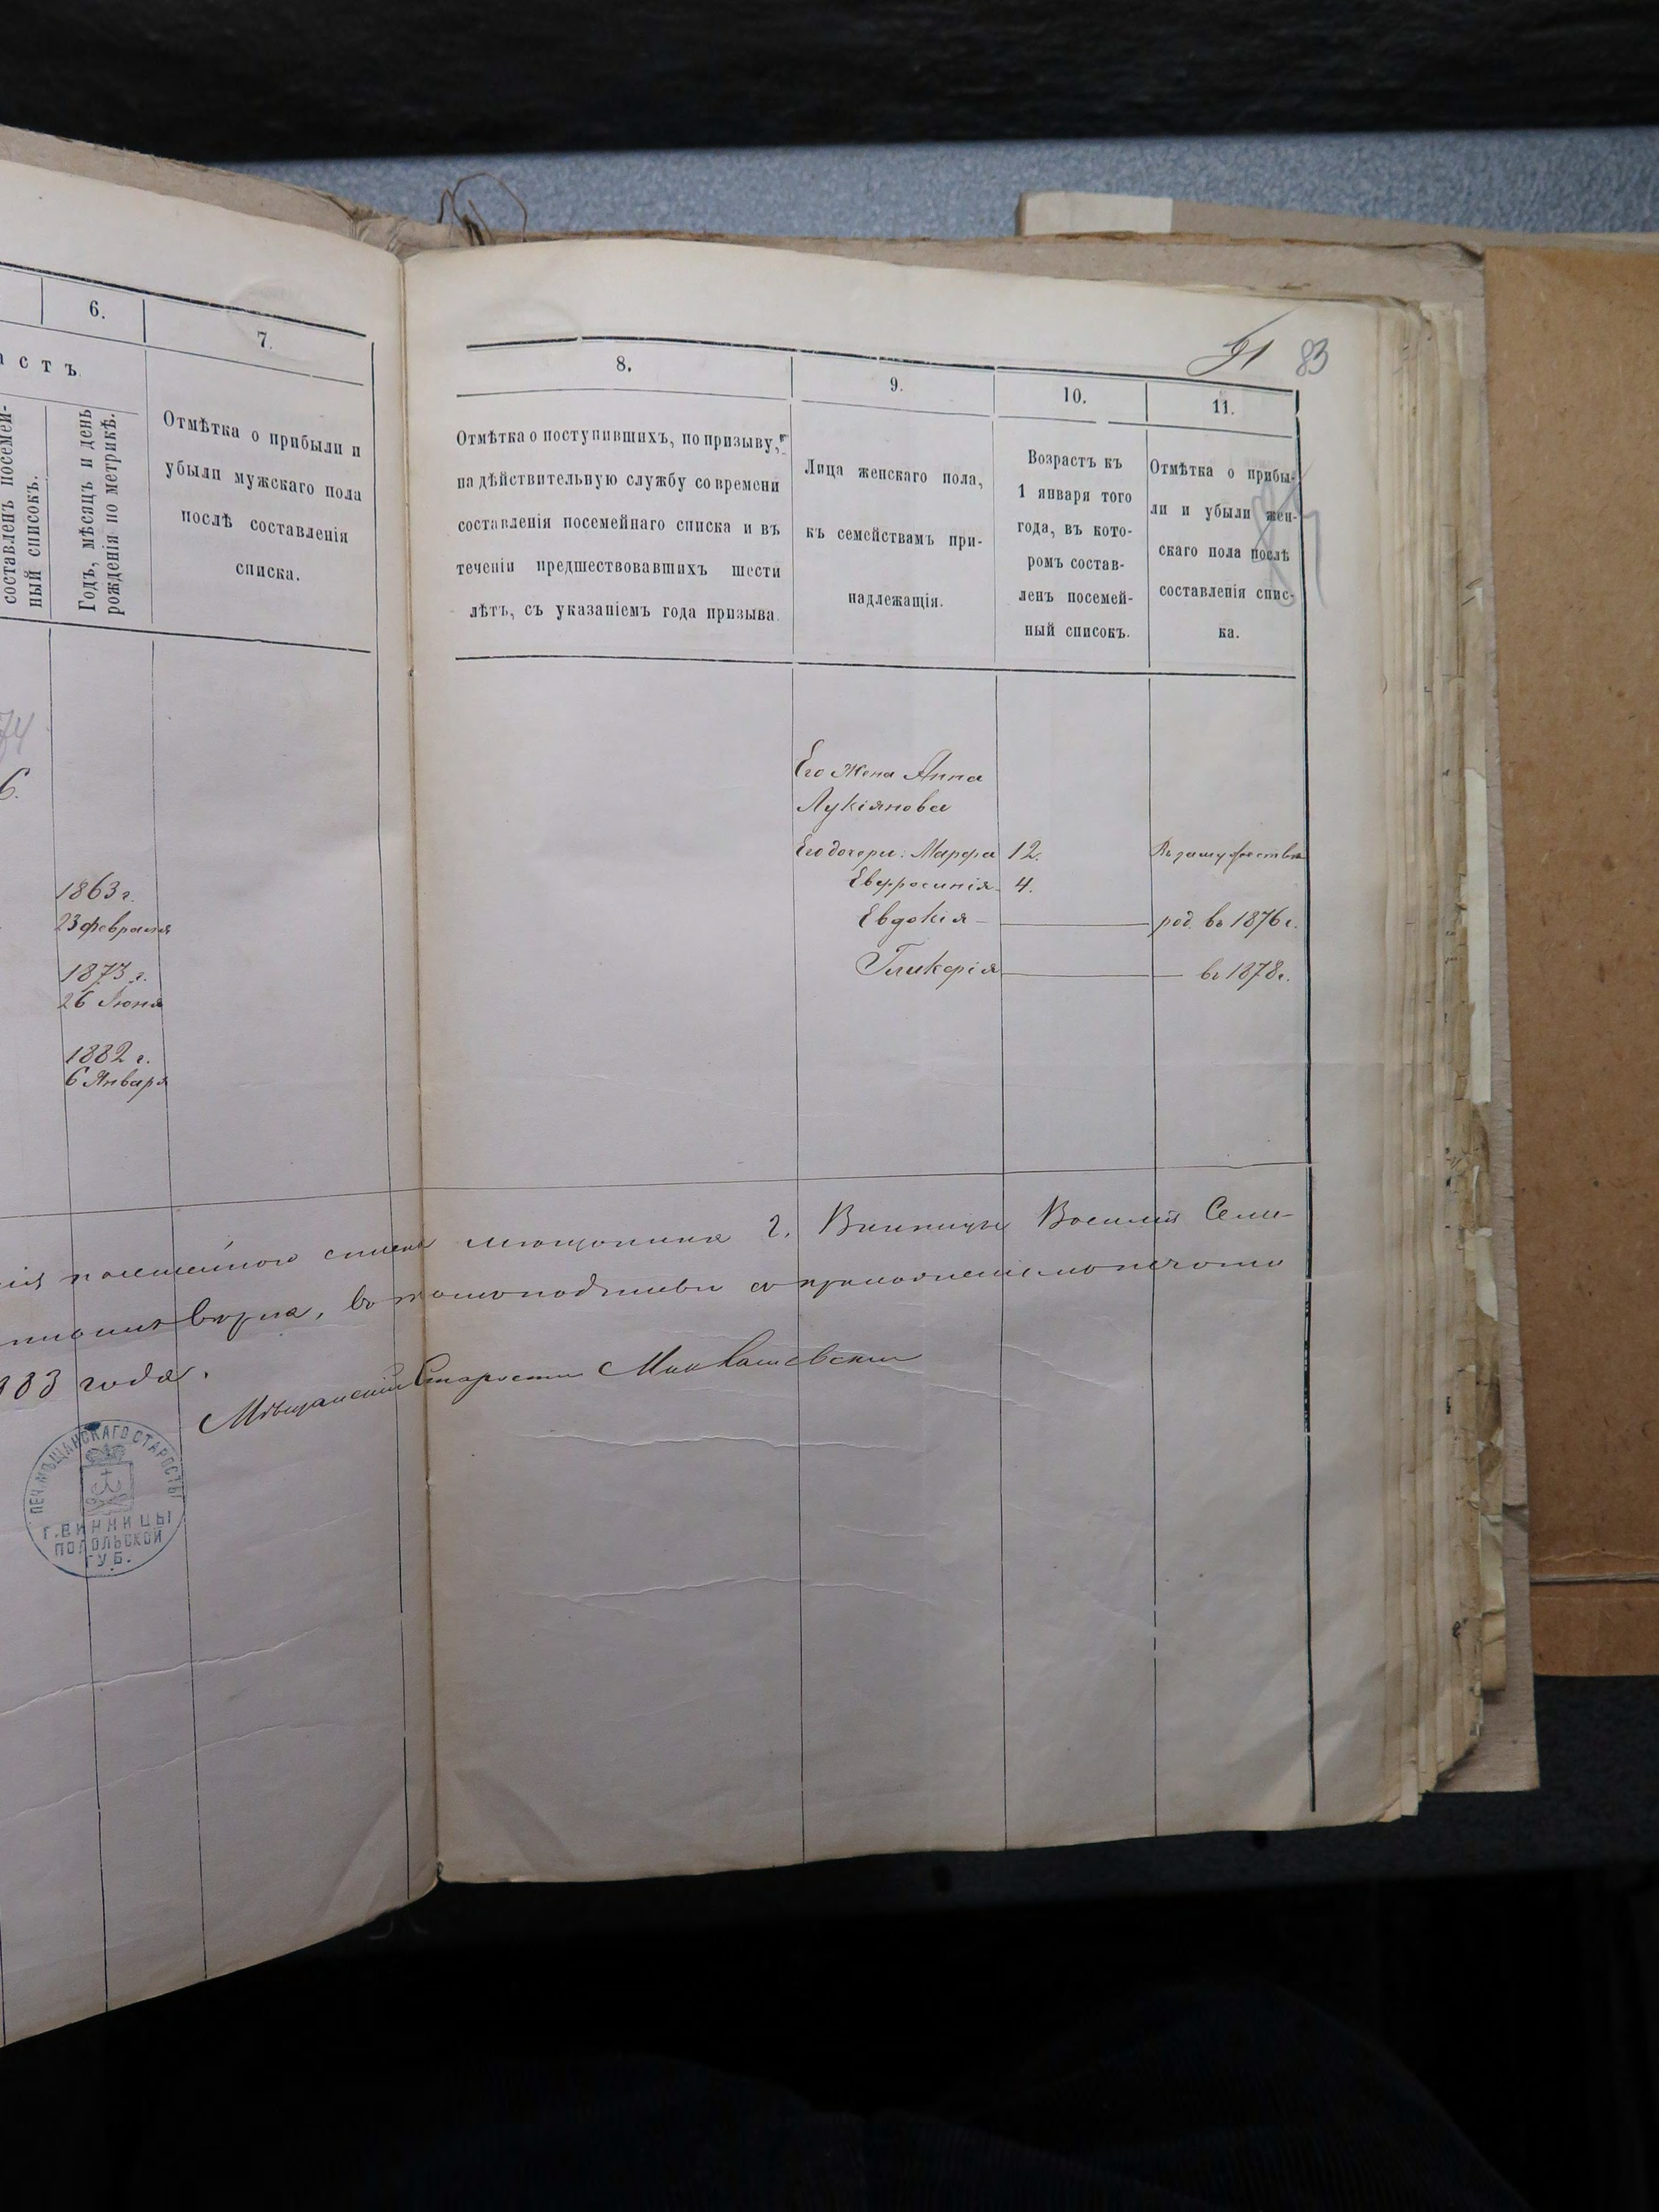 6.
7.
астъ
составленъ посемей-
ный списокъ.
Годъ, мѣсяцъ и день
рожденія по метрикѣ.
Отмѣтка о прибыли и
убыли мужскаго пола
послѣ составленія
списка.
74
6.
1863 г.
23 февраля
1873 г.
26 Июня
1882 г.
6 Января
91 83
8.
9.
10.
11.
Отмѣтка о поступившихъ, по призыву,
на дѣйствительную службу со времени
составленія посемейнаго списка и въ
теченіи предшествовавшихъ шести
лѣтъ, съ указаніемъ года призыва.
Лица женскаго пола,
къ семействамъ при-
надлежащія.
Возрастъ къ
1 января того
года, въ кото-
ромъ состав-
ленъ посемей-
ный списокъ.
Отмѣтка о прибы-
ли и убыли жен-
скаго пола послѣ
составленія спис-
ка.
Его жена Анна
Лукіянова
Его дочери: Марфа 12. Въ замужествѣ
Евфросинія 4.
Евдокія — род. въ 1876 г.
Гликерія — въ 1878 г.
посемейного списка мещанина г. Винницы Василий Семе-
въ томъ подписью съ приложениемъ печати
883 года.
Мѣщанскій Староста
ПЕЧ. МѢЩАНСКАГО СТАРОСТЫ
Г. ВИННИЦЫ
ПОДОЛЬСКОЙ
ГУБ.